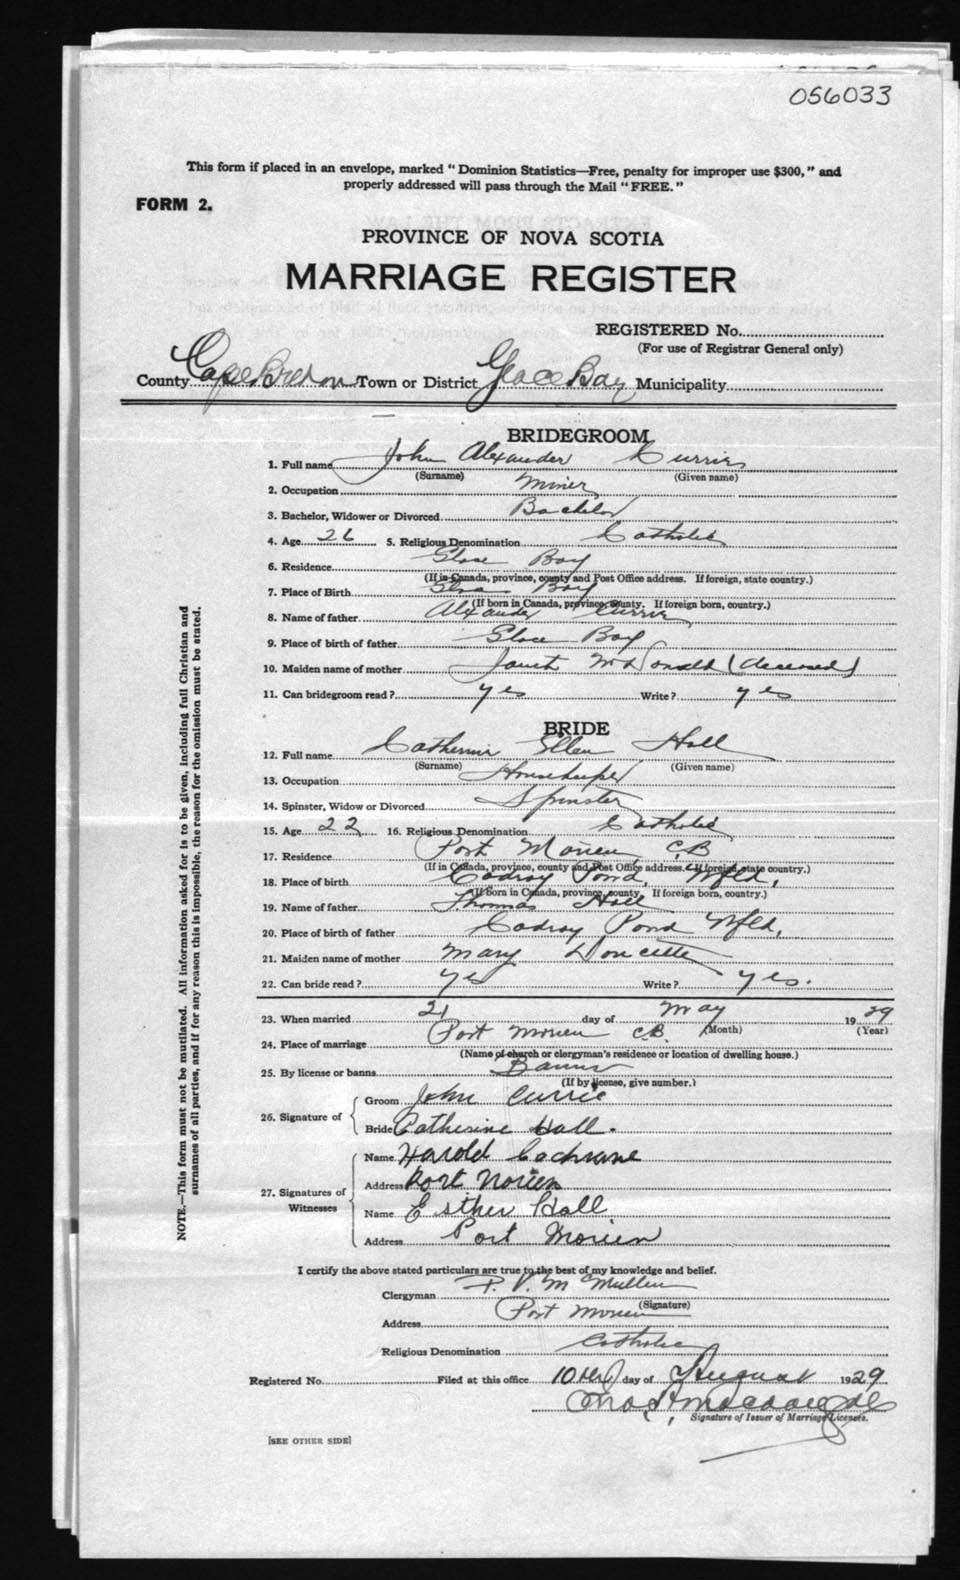 056033
This form if placed in an envelope, marked "Dominion Statistics—Free, penalty for improper use $300," and
properly addressed will pass through the Mail "FREE."
FORM 2.
PROVINCE OF NOVA SCOTIA
MARRIAGE REGISTER
REGISTERED No.
(For use of Registrar General only)
County Cape Breton Town or District Glace Bay Municipality
BRIDEGROOM
1. Full name John Alexander Currie
(Surname) (Given name)
2. Occupation Miner
3. Bachelor, Widower or Divorced Bachelor
4. Age 26 5. Religious Denomination Catholic
6. Residence Glace Bay
(If in Canada, province, county and Post Office address. If foreign, state country.)
7. Place of Birth Glace Bay
(If born in Canada, province, county. If foreign born, country.)
8. Name of father Alexander Currie
9. Place of birth of father Glace Bay
10. Maiden name of mother Janet McDonald (deceased)
11. Can bridegroom read? yes Write? yes
BRIDE
12. Full name Catherine Ellen Hall
(Surname) (Given name)
13. Occupation Housekeeper
14. Spinster, Widow or Divorced Spinster
15. Age 22 16. Religious Denomination Catholic
17. Residence Port Morien C.B
(If in Canada, province, county and Post Office address. If foreign, state country.)
18. Place of birth Codroy Pond, Nfld,
(If born in Canada, province, county. If foreign born, country.)
19. Name of father Thomas Hall
20. Place of birth of father Codroy Pond Nfld,
21. Maiden name of mother Mary Doucette
22. Can bride read? yes Write? yes.
23. When married 21 day of May 1929
(Month) (Year)
24. Place of marriage Port Morien C.B.
(Name of church or clergyman's residence or location of dwelling house.)
25. By license or banns Banns
(If by license, give number.)
26. Signature of
Groom John Currie
Bride Catherine Hall.
27. Signatures of Witnesses
Name Harold Cochrane
Address Port Morien
Name Esther Hall
Address Port Morien
I certify the above stated particulars are true to the best of my knowledge and belief.
Clergyman P. V. McMullen
(Signature)
Address Port Morien
Religious Denomination Catholic
Registered No. Filed at this office 10th day of August 1929
Signature of Issuer of Marriage Licenses.
[SEE OTHER SIDE]
NOTE.—This form must not be mutilated. All information asked for is to be given, including full Christian and
surnames of all parties, and if for any reason this is impossible, the reason for the omission must be stated.